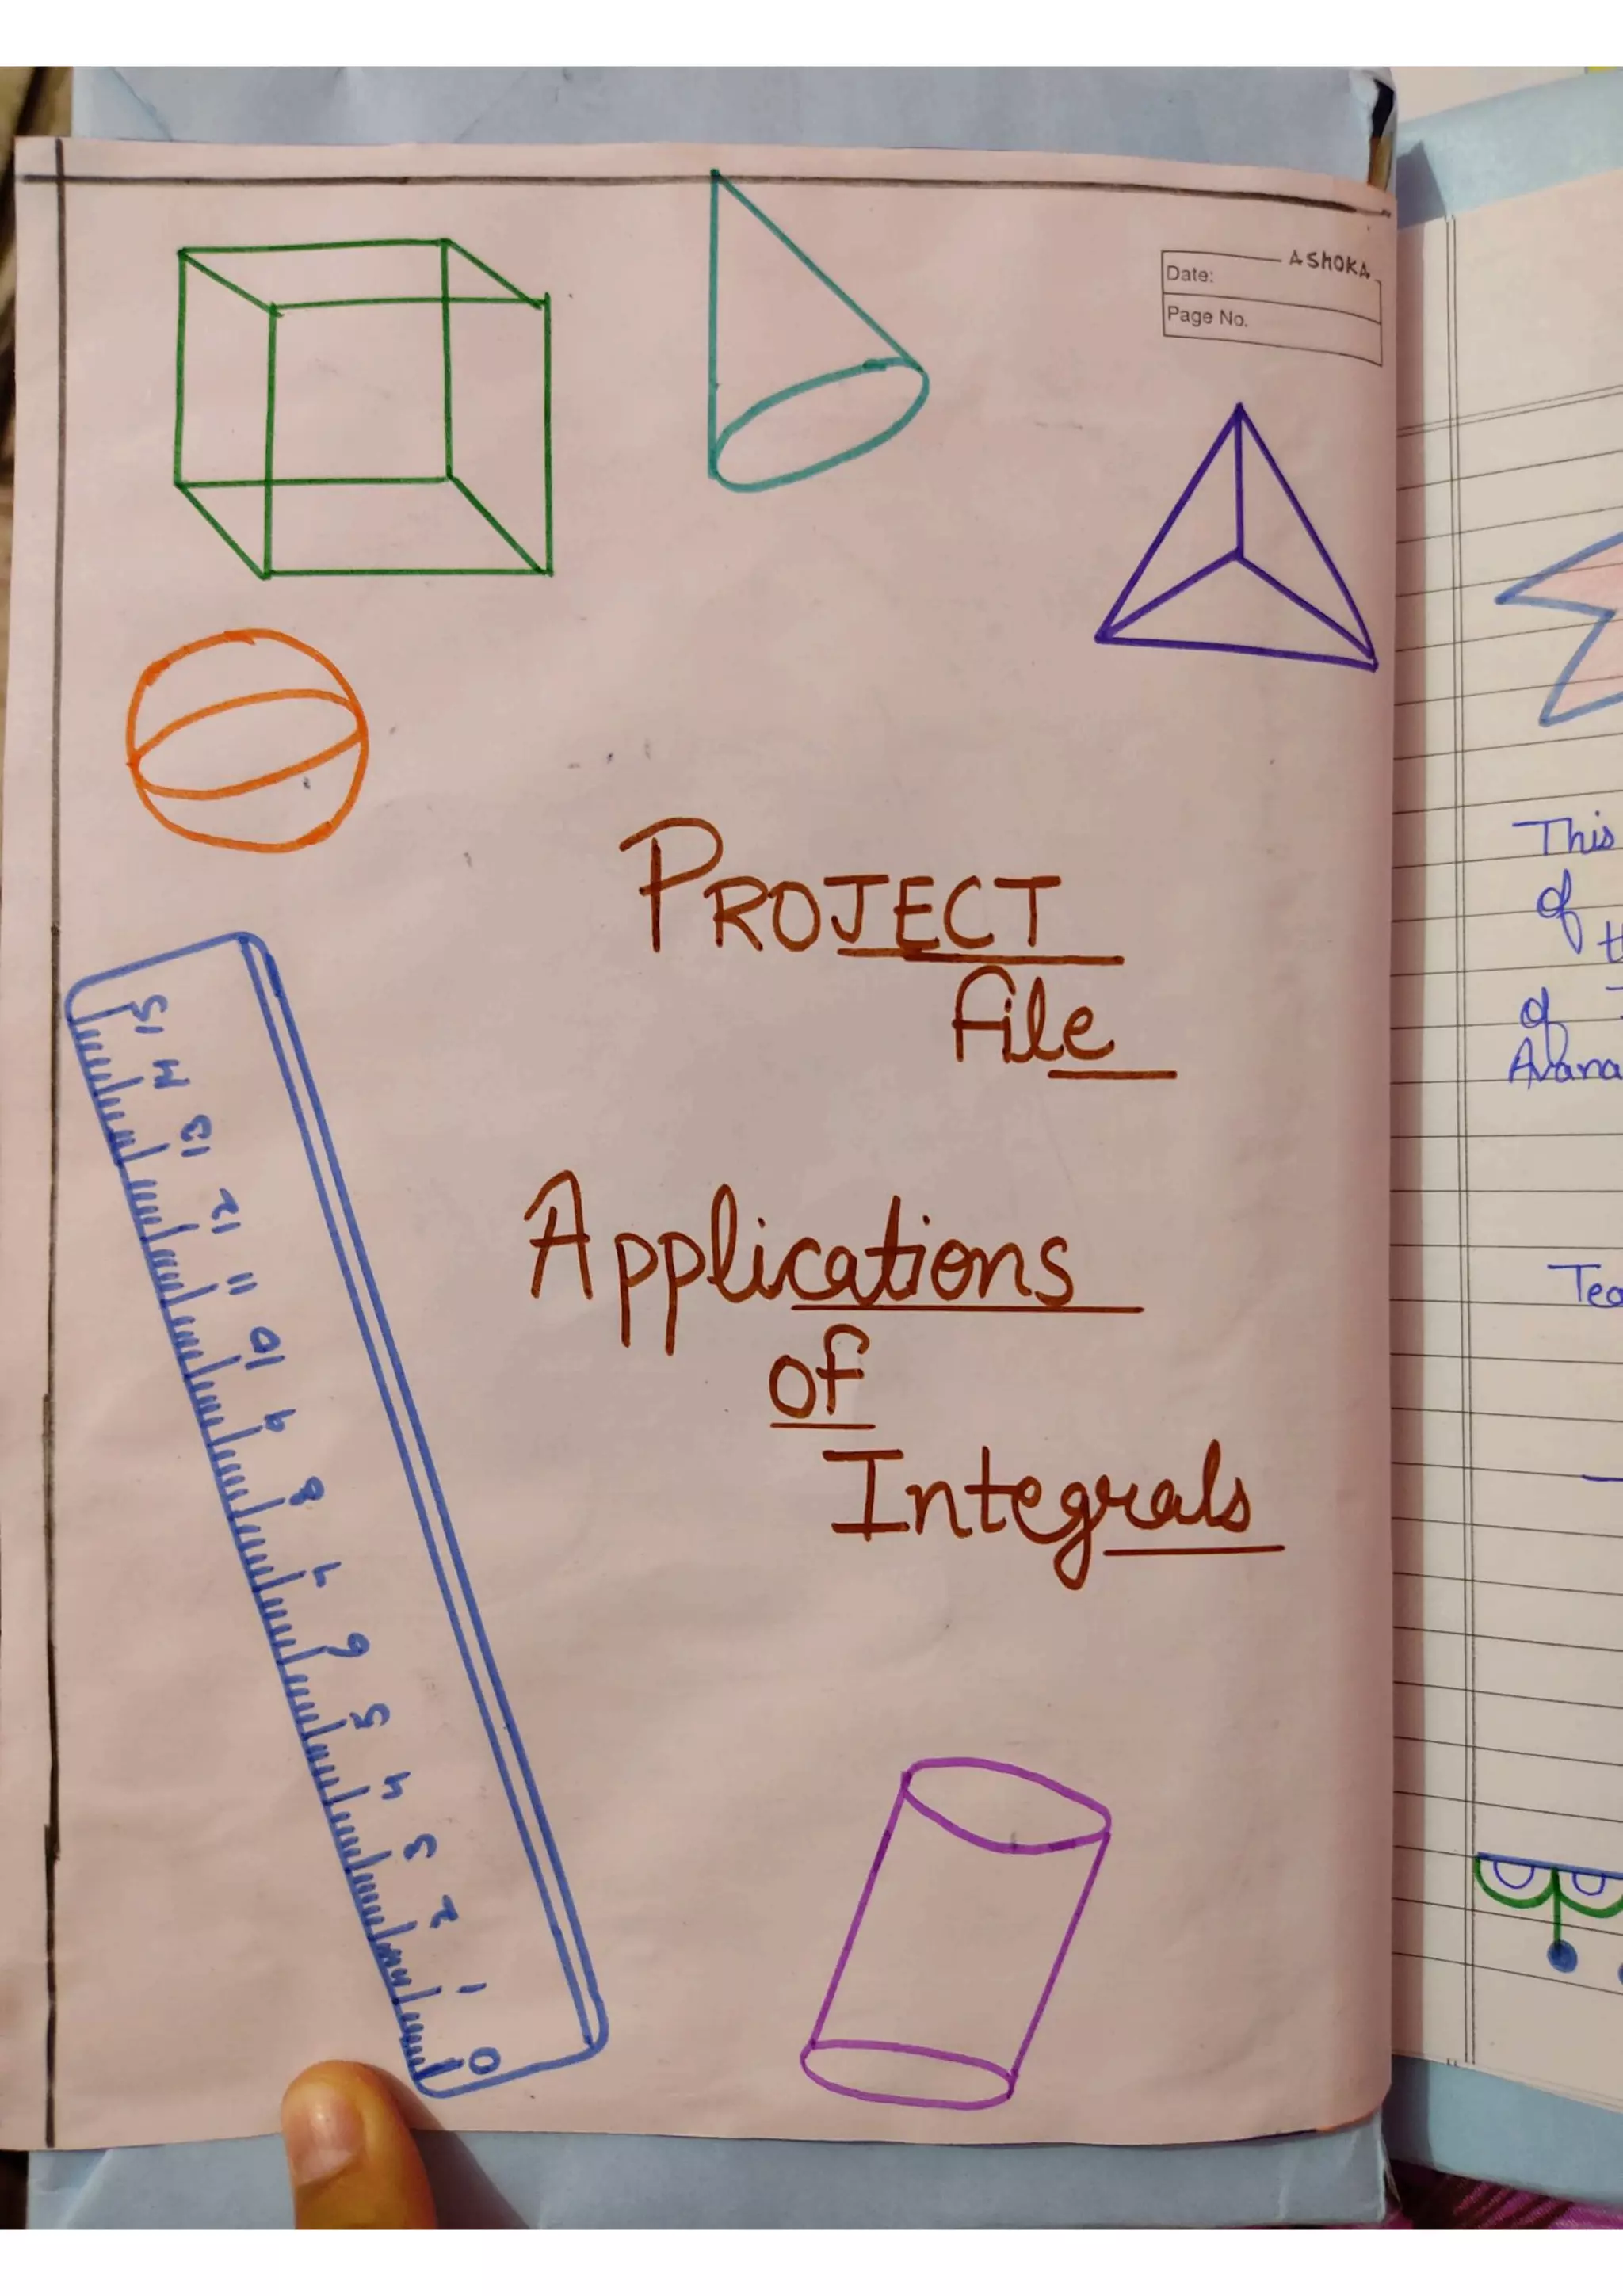 ASHOKA
Date:
Page No.
PROJECT
file
Applications
of
Integrals
15
14
13
12
11
10
9
8
7
6
5
4
3
2
1
0
This
of
of
Tea